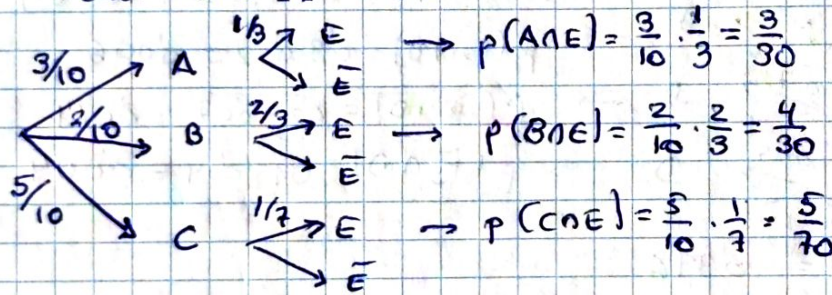 1/3 E → p(A∩E) = 3/10 · 1/3 = 3/30
3/10 A
E̅
2/10 B 2/3 E → p(B∩E) = 2/10 · 2/3 = 4/30
E̅
5/10 C 1/7 E → p(C∩E) = 5/10 · 1/7 = 5/70
E̅